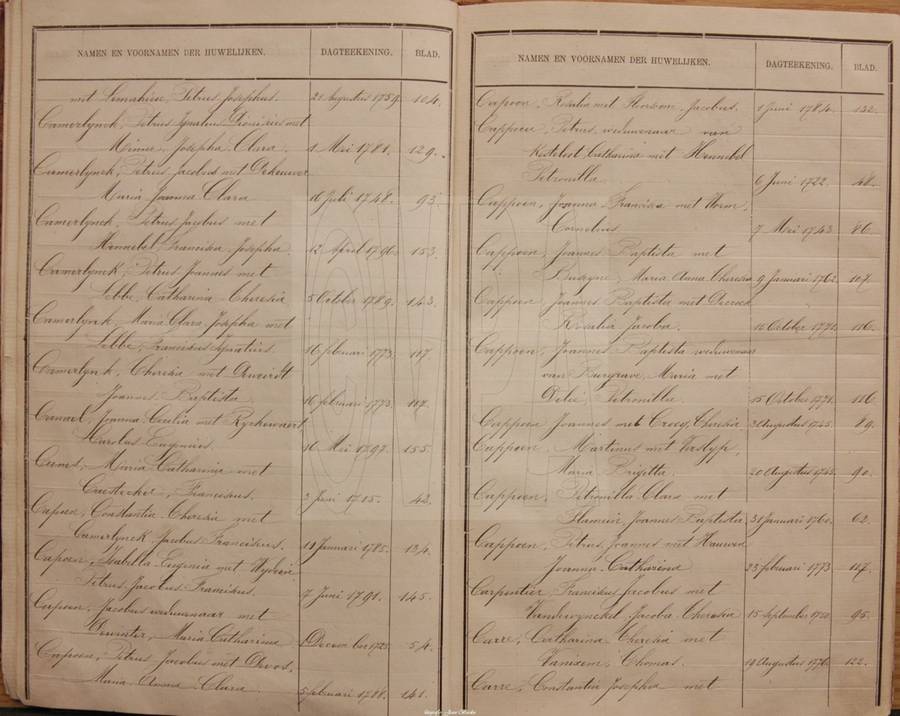 NAMEN EN VOORNAMEN DER HUWELIJKEN. DAGTEEKENING. BLAD.
met Lemahieu, Petrus Josephus. 21 Augustus 1759. 104.
Camerlynck, Petrus Ignatius Dionisius met
Josepha Clara. 1 Mei 1781. 129.
Camerlynck, Petrus Jacobus met Dekeuwer
Maria Joanna Clara 16 Juli 1748. 93.
Camerlynck, Petrus Jacobus met
Francisca Josepha. 12 April 1796. 153.
Camerlynck, Petrus Joannes met
Lebbe, Catharina Theresia 5 October 1789. 143.
Camerlynck Maria Clara Josepha met
Lebbe, Franciscus Ignatius. 16 februari 1773. 117.
Camerlynck, Theresia met
Joannes Baptista. 16 februari 1773. 117.
Joanna Cecilia met Ryckewaert
Carolus Eugenius. 16 Mei 1797. 155.
Maria Catharina met
Franciscus. 2 Juni 1715. 42.
Capoen, Constantia Theresia met
Camerlynck Jacobus Franciskus. 11 Januari 1785. 134.
Capoen, Isabella Eugenia met
Petrus Jacobus Franciskus. 7 Juni 1791. 145.
Capoen, Jacobus weduwnaar met
Dewinter, Maria Catharina December 1725. 54.
Capoen, Petrus Jacobus met Devos,
Maria Anna Clara. 5 februari 1788. 141.
NAMEN EN VOORNAMEN DER HUWELIJKEN. DAGTEEKENING. BLAD.
Capoen, Rosalia met Jacobus. 1 Juni 1784. 132.
Cappoen Petrus, weduwenaar van
Keteloot, Catharina met Hennebel
Petronilla. 6 Juni 1722. 48.
Cappoen, Joanna Francisca met Worm,
Cornelius. 7 Mei 1743. 86.
Cappoen, Joannes Baptista met
Maria Anna Theresia 9 Januari 1762. 107.
Cappoen Joannes Baptista met Decrock
Rosalia Jacoba. October 1771. 116.
Cappoen, Joannes Baptista weduwenaar
van Burgrave, Maria met
Delie, Petronilla. 15 October 1771. 116
Cappoen Joannes met Croeq Theresia 3 Augustus 1745. 89.
Cappoen, Martinus met Verslype,
Maria Brigitta. 20 Augustus 1745. 90.
Cappoen, Petronilla Clara met
Joannes Baptista 31 Januari 1760. 62.
Cappoen, Petrus Joannes met
Joanna Catharina 23 februari 1773. 117.
Carpentier, Franciscus Jacobus met
Vanderwynckel, Jacoba Theresia 15 September 1750. 95.
Carre, Catharina Theresia met
Vanixem, Thomas. 19 Augustus 1776. 122.
Carre, Constantia Josepha met